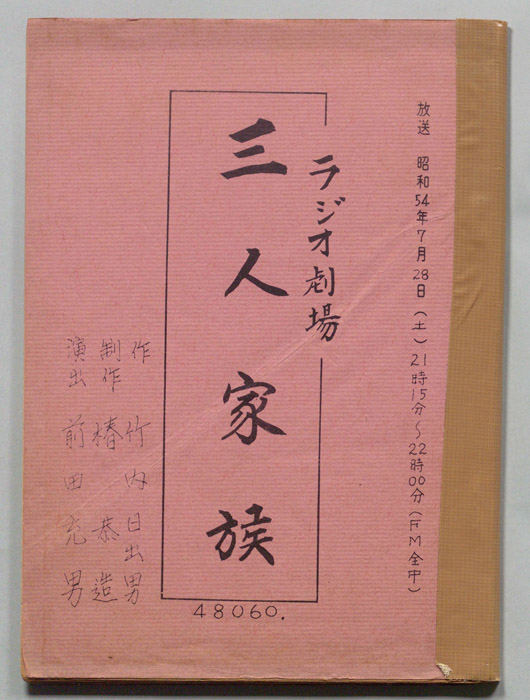 放送 昭和54年7月28日(土)21時15分~22時00分(FM全中)
ラジオ劇場
三人家族
作 竹内日出男
制作 椿恭造
演出 前田充男
48060.